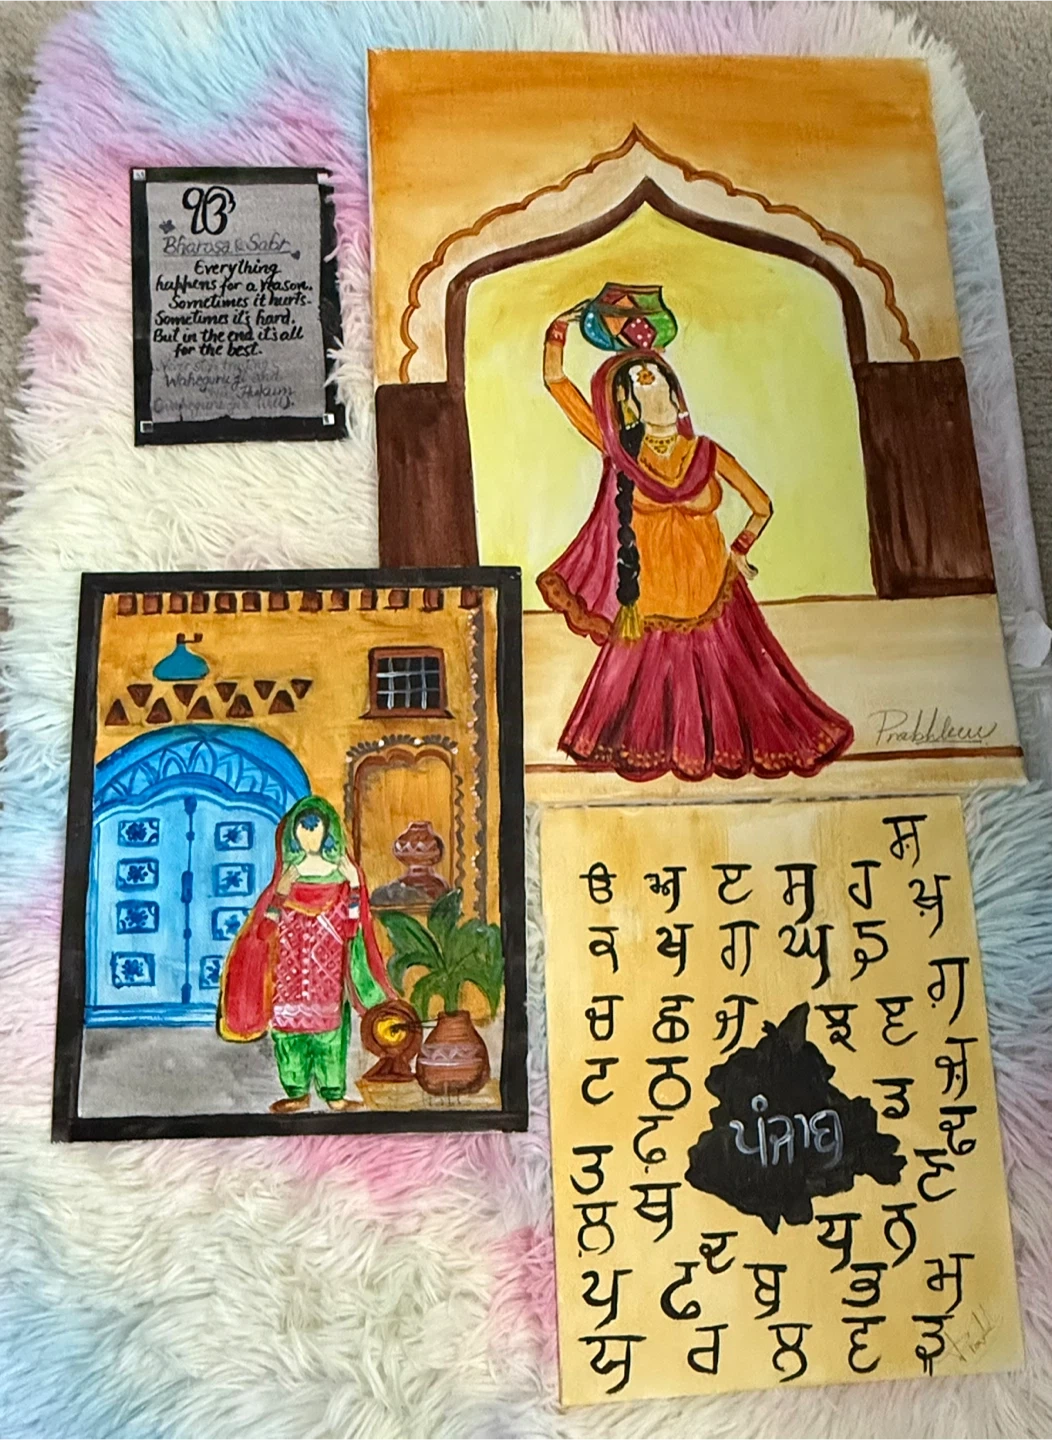 ੴ
Bharosa & Sabr
Everything
happens for a reason.
Sometimes it hurts.
Sometimes it's hard.
But in the end it's all
for the best.
Waheguru ji
Hukum
ਸ਼
ੳ ਅ ੲ ਸ ਹ ਖ਼
ਕ ਖ ਗ ਘ ਙ ਗ਼
ਚ ਛ ਜ ਝ ਞ ਜ਼
ਟ ਠ ਡ ਢ
ਢ ਣ
ਪੰਜਾਬ
ਤ ਥ
ਲ਼ ਦ ਧ ਨ
ਪ ਫ ਬ ਭ ਮ
ਯ ਰ ਲ ਵ ੜ